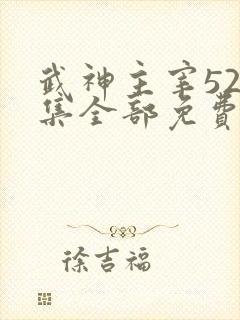 武神主宰52
集全部免费
徐吉福